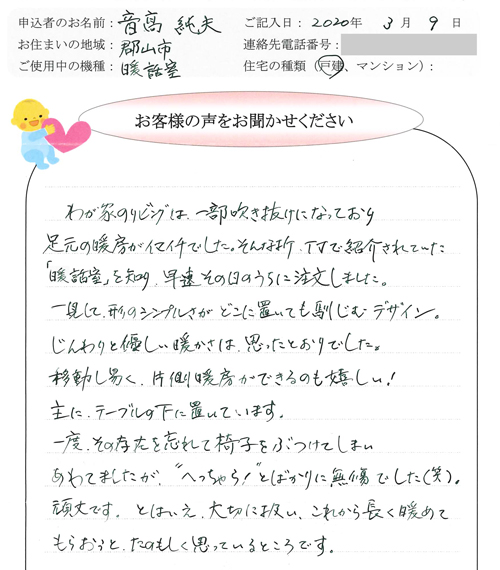 申込者のお名前： 音高 純夫 ご記入日： 2020年 3月 9日
お住まいの地域： 郡山市 連絡先電話番号：
ご使用中の機種： 暖話室 住宅の種類（戸建、マンション）：
お客様の声をお聞かせください
わが家のリビングは、一部吹き抜けになっており
足元の暖房がイマイチでした。そんな折、TVで紹介されていた
「暖話室」を知り、早速その日のうちに注文しました。
一見して、形のシンプルさがどこに置いても馴じむデザイン。
じんわりと優しい暖かさは、思ったとおりでした。
移動し易く、片側暖房ができるのも嬉しい！
主に、テーブルの下に置いています。
一度、その存在を忘れて椅子をぶつけてしまい
あわてましたが、“へっちゃら！”とばかりに無傷でした(笑)。
頑丈です。とはいえ、大切に扱い、これから長く暖めて
もらおうと、たのもしく思っているところです。